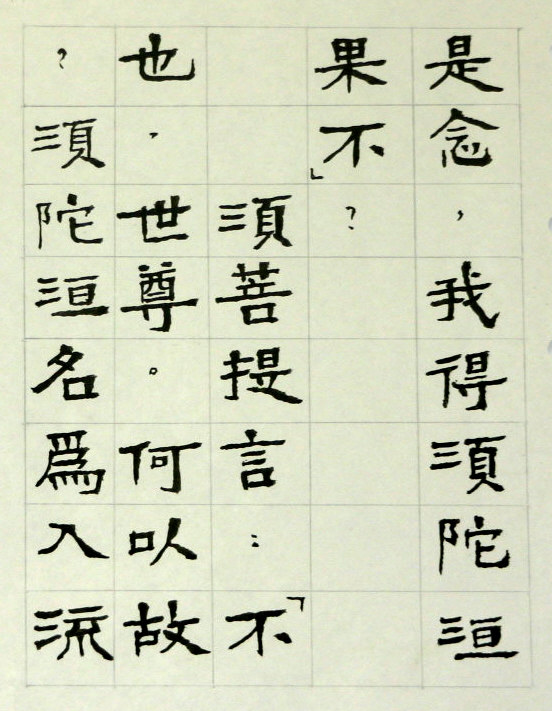 是念，我得須陀洹
果不」？
須菩提言：「不
也，世尊。何以故
？須陀洹名為入流